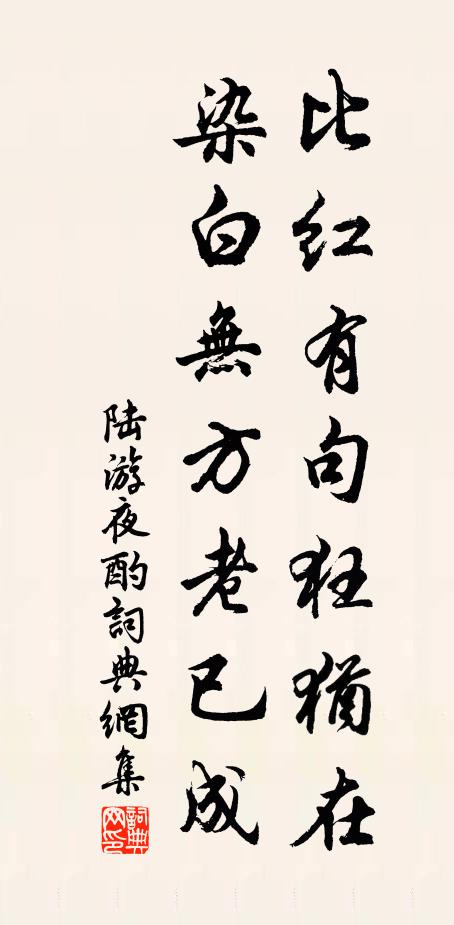 比红有句狂猶在
染白無方老已成
陆游夜酌詞典網集
詞典網印